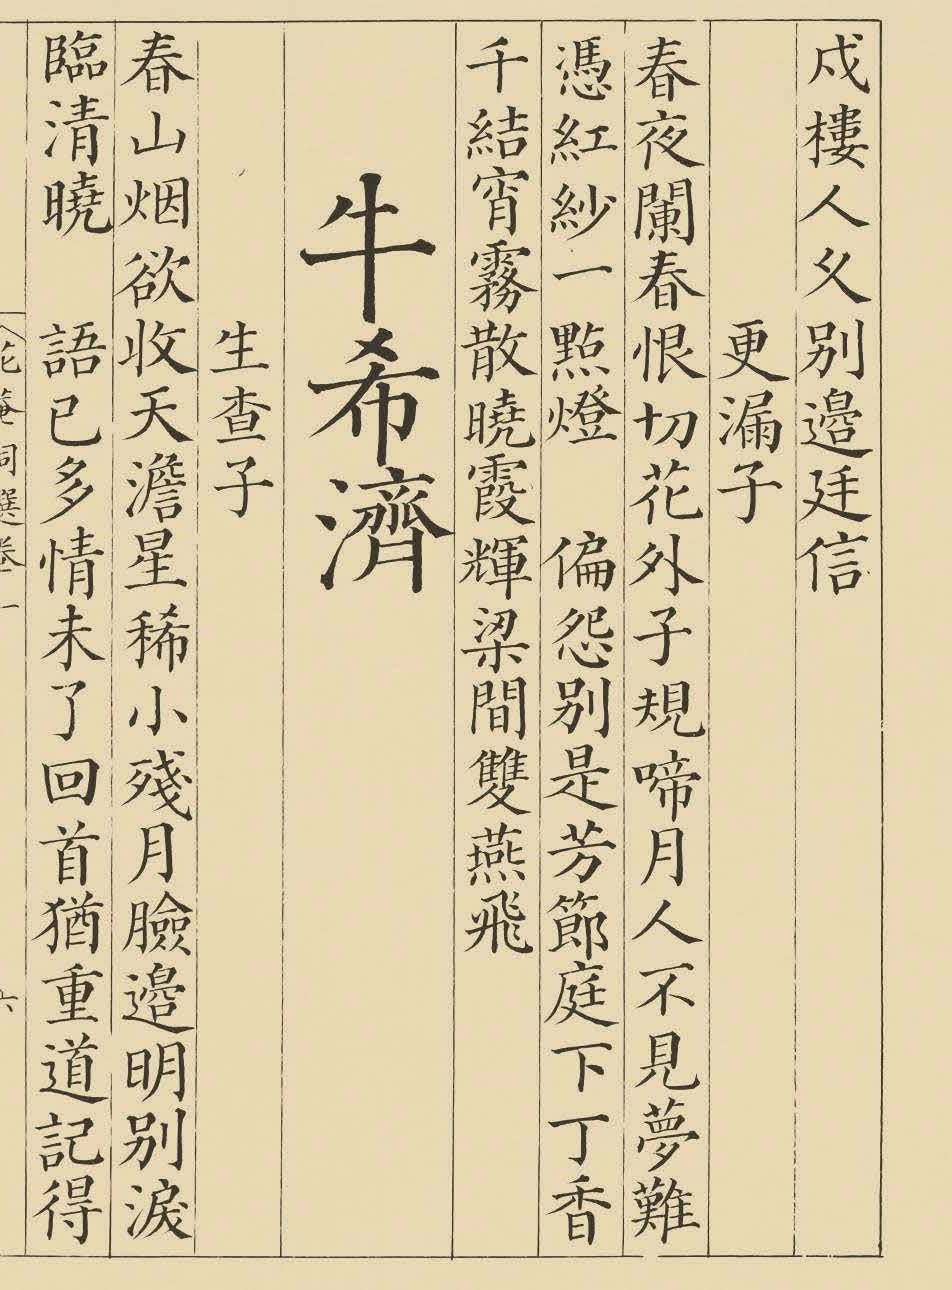 戍樓人久別邉廷信
更漏子
春夜闌春恨切花外子規啼月人不見夢難
憑紅紗一點燈　偏怨別是芳節庭下丁香
千結宵霧散曉霞輝梁間雙燕飛
牛希濟
生查子
春山烟欲收天澹星稀小殘月臉邉明別淚
臨清曉　語已多情未了回首猶重道記得
花菴詞選卷一
六